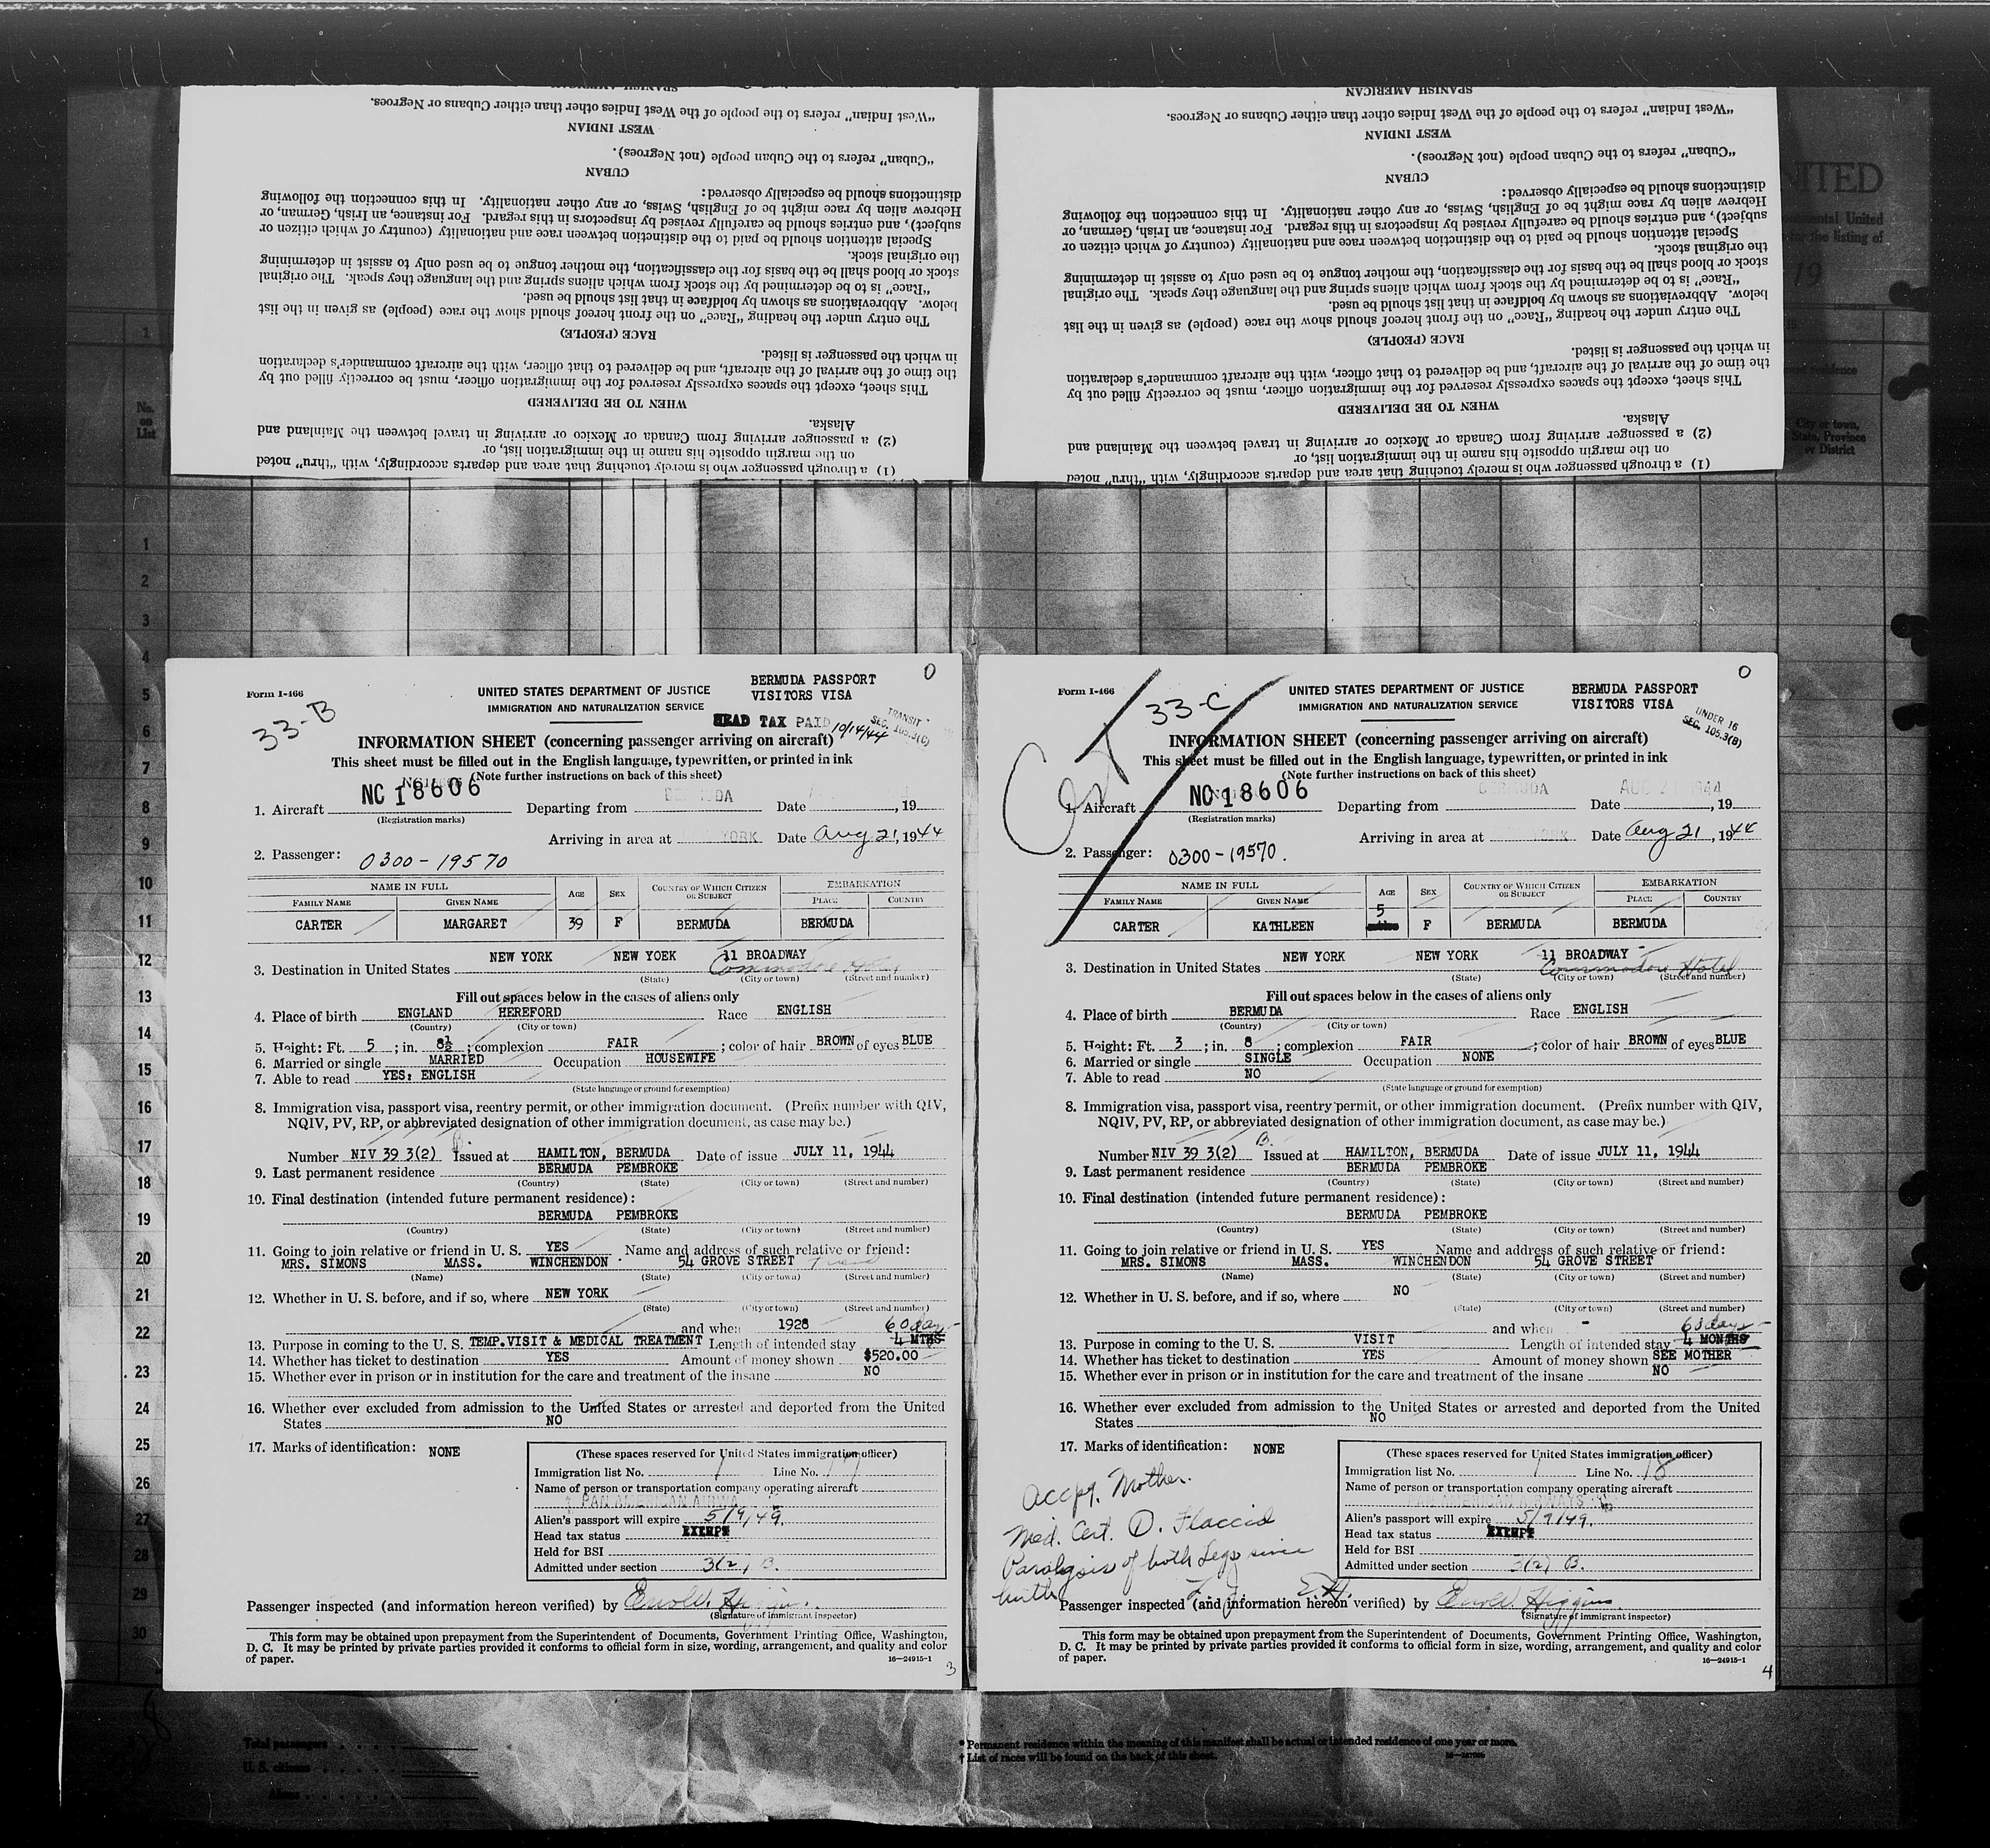 (1) a through passenger who is merely touching that area and departs accordingly, with "thru" noted
on the margin opposite his name in the immigration list, or
(2) a passenger arriving from Canada or Mexico or arriving in travel between the Mainland and
Alaska.
WHEN TO BE DELIVERED
This sheet, except the spaces expressly reserved for the immigration officer, must be correctly filled out by
the time of the arrival of the aircraft, and be delivered to that officer, with the aircraft commander's declaration
in which the passenger is listed.
RACE (PEOPLE)
The entry under the heading "Race" on the front hereof should show the race (people) as given in the list
below. Abbreviations as shown by boldface in that list should be used.
"Race" is to be determined by the stock from which aliens spring and the language they speak. The original
stock or blood shall be the basis for the classification, the mother tongue to be used only to assist in determining
the original stock.
Special attention should be paid to the distinction between race and nationality (country of which citizen or
subject), and entries should be carefully revised by inspectors in this regard. For instance, an Irish, German, or
Hebrew alien by race might be of English, Swiss, or any other nationality. In this connection the following
distinctions should be especially observed:
CUBAN
"Cuban" refers to the Cuban people (not Negroes).
WEST INDIAN
"West Indian" refers to the people of the West Indies other than either Cubans or Negroes.
SPANISH AMERICAN
(1) a through passenger who is merely touching that area and departs accordingly, with "thru" noted
on the margin opposite his name in the immigration list, or
(2) a passenger arriving from Canada or Mexico or arriving in travel between the Mainland and
Alaska.
WHEN TO BE DELIVERED
This sheet, except the spaces expressly reserved for the immigration officer, must be correctly filled out by
the time of the arrival of the aircraft, and be delivered to that officer, with the aircraft commander's declaration
in which the passenger is listed.
RACE (PEOPLE)
The entry under the heading "Race" on the front hereof should show the race (people) as given in the list
below. Abbreviations as shown by boldface in that list should be used.
"Race" is to be determined by the stock from which aliens spring and the language they speak. The original
stock or blood shall be the basis for the classification, the mother tongue to be used only to assist in determining
the original stock.
Special attention should be paid to the distinction between race and nationality (country of which citizen or
subject), and entries should be carefully revised by inspectors in this regard. For instance, an Irish, German, or
Hebrew alien by race might be of English, Swiss, or any other nationality. In this connection the following
distinctions should be especially observed:
CUBAN
"Cuban" refers to the Cuban people (not Negroes).
WEST INDIAN
"West Indian" refers to the people of the West Indies other than either Cubans or Negroes.
SPANISH AMERICAN
United
for the listing of
19
residence
City or town,
State, Province
or District
1
No.
on
List
1
2
3
4
5
6
7
8
9
10
11
12
13
14
15
16
17
18
19
20
21
22
23
24
25
26
27
28
29
30
0
Form I-466
33-B
UNITED STATES DEPARTMENT OF JUSTICE
IMMIGRATION AND NATURALIZATION SERVICE
BERMUDA PASSPORT
VISITORS VISA
HEAD TAX PAID 10/14/44
TRANSIT
SEC. 105.3(C)
INFORMATION SHEET (concerning passenger arriving on aircraft)
This sheet must be filled out in the English language, typewritten, or printed in ink
(Note further instructions on back of this sheet)
1. Aircraft NC 18606 Departing from BERMUDA Date , 19
(Registration marks)
Arriving in area at YORK Date Aug 21, 1944
2. Passenger: 0300-19570
NAME IN FULL AGE SEX COUNTRY OF WHICH CITIZEN OR SUBJECT EMBARKATION
FAMILY NAME GIVEN NAME PLACE COUNTRY
CARTER MARGARET 39 F BERMUDA BERMUDA
3. Destination in United States NEW YORK NEW YOEK 11 BROADWAY
Commodore
(State) (City or town) (Street and number)
Fill out spaces below in the cases of aliens only
4. Place of birth ENGLAND HEREFORD Race ENGLISH
(Country) (City or town)
5. Height: Ft. 5 ; in. 8½ ; complexion FAIR ; color of hair BROWN of eyes BLUE
6. Married or single MARRIED Occupation HOUSEWIFE
7. Able to read YES: ENGLISH
(State language or ground for exemption)
8. Immigration visa, passport visa, reentry permit, or other immigration document. (Prefix number with QIV,
NQIV, PV, RP, or abbreviated designation of other immigration document, as case may be.)
Number NIV 39 3(2) B. Issued at HAMILTON, BERMUDA Date of issue JULY 11, 1944
9. Last permanent residence BERMUDA PEMBROKE
(Country) (State) (City or town) (Street and number)
10. Final destination (intended future permanent residence):
BERMUDA PEMBROKE
(Country) (State) (City or town) (Street and number)
11. Going to join relative or friend in U. S. YES Name and address of such relative or friend:
MRS. SIMONS MASS. WINCHENDON 54 GROVE STREET friend
(Name) (State) (City or town) (Street and number)
12. Whether in U. S. before, and if so, where NEW YORK
(State) (City or town) (Street and number)
and when 1928 60 days
13. Purpose in coming to the U. S. TEMP.VISIT & MEDICAL TREATMENT Length of intended stay 4 MTHS
14. Whether has ticket to destination YES Amount of money shown $520.00
15. Whether ever in prison or in institution for the care and treatment of the insane NO
16. Whether ever excluded from admission to the United States or arrested and deported from the United
States NO
17. Marks of identification: NONE
(These spaces reserved for United States immigration officer)
Immigration list No. 1 Line No. 17
Name of person or transportation company operating aircraft
PAN AMERICAN AIRWAYS
Alien's passport will expire 5/9/49.
Head tax status EXEMPT
Held for BSI
Admitted under section 3(2) B.
Passenger inspected (and information hereon verified) by Enroll. Higgins.
(Signature of immigrant inspector)
This form may be obtained upon prepayment from the Superintendent of Documents, Government Printing Office, Washington,
D. C. It may be printed by private parties provided it conforms to official form in size, wording, arrangement, and quality and color
of paper.
16—24915-1
3
0
Form I-466
Cert
33-C
UNITED STATES DEPARTMENT OF JUSTICE
IMMIGRATION AND NATURALIZATION SERVICE
BERMUDA PASSPORT
VISITORS VISA
UNDER 16
SEC. 105.3(B)
INFORMATION SHEET (concerning passenger arriving on aircraft)
This sheet must be filled out in the English language, typewritten, or printed in ink
(Note further instructions on back of this sheet)
1. Aircraft NC 18606 Departing from BERMUDA Date AUG 21 1944, 19
(Registration marks)
Arriving in area at YORK Date Aug 21, 1944
2. Passenger: 0300-19570.
NAME IN FULL AGE SEX COUNTRY OF WHICH CITIZEN OR SUBJECT EMBARKATION
FAMILY NAME GIVEN NAME PLACE COUNTRY
CARTER KATHLEEN 5 F BERMUDA BERMUDA
3. Destination in United States NEW YORK NEW YORK 11 BROADWAY
Commodore Hotel
(State) (City or town) (Street and number)
Fill out spaces below in the cases of aliens only
4. Place of birth BERMUDA Race ENGLISH
(Country) (City or town)
5. Height: Ft. 3 ; in. 8 ; complexion FAIR ; color of hair BROWN of eyes BLUE
6. Married or single SINGLE Occupation NONE
7. Able to read NO
(State language or ground for exemption)
8. Immigration visa, passport visa, reentry permit, or other immigration document. (Prefix number with QIV,
NQIV, PV, RP, or abbreviated designation of other immigration document, as case may be.)
Number NIV 39 3(2) B. Issued at HAMILTON, BERMUDA Date of issue JULY 11, 1944
9. Last permanent residence BERMUDA PEMBROKE
(Country) (State) (City or town) (Street and number)
10. Final destination (intended future permanent residence):
BERMUDA PEMBROKE
(Country) (State) (City or town) (Street and number)
11. Going to join relative or friend in U. S. YES Name and address of such relative or friend:
MRS. SIMONS MASS. WINCHENDON 54 GROVE STREET
(Name) (State) (City or town) (Street and number)
12. Whether in U. S. before, and if so, where NO
(State) (City or town) (Street and number)
and when - 60 days
13. Purpose in coming to the U. S. VISIT Length of intended stay 4 MONTHS
14. Whether has ticket to destination YES Amount of money shown SEE MOTHER
15. Whether ever in prison or in institution for the care and treatment of the insane NO
16. Whether ever excluded from admission to the United States or arrested and deported from the United
States NO
17. Marks of identification: NONE
Accpg. Mother.
Med. Cert. D. Flaccid
Paralysis of both legs since
birth
(These spaces reserved for United States immigration officer)
Immigration list No. 1 Line No. 18
Name of person or transportation company operating aircraft
PAN AMERICAN AIRWAYS
Alien's passport will expire 5/9/49.
Head tax status EXEMPT
Held for BSI
Admitted under section 3(2) B.
Passenger inspected (and information hereon verified) by Enroll. Higgins.
(Signature of immigrant inspector)
This form may be obtained upon prepayment from the Superintendent of Documents, Government Printing Office, Washington,
D. C. It may be printed by private parties provided it conforms to official form in size, wording, arrangement, and quality and color
of paper.
16—24915-1
4
Total passengers
U. S. citizens
Aliens
* Permanent residence within the meaning of this manifest shall be actual or intended residence of one year or more.
† List of races will be found on the back of this sheet.